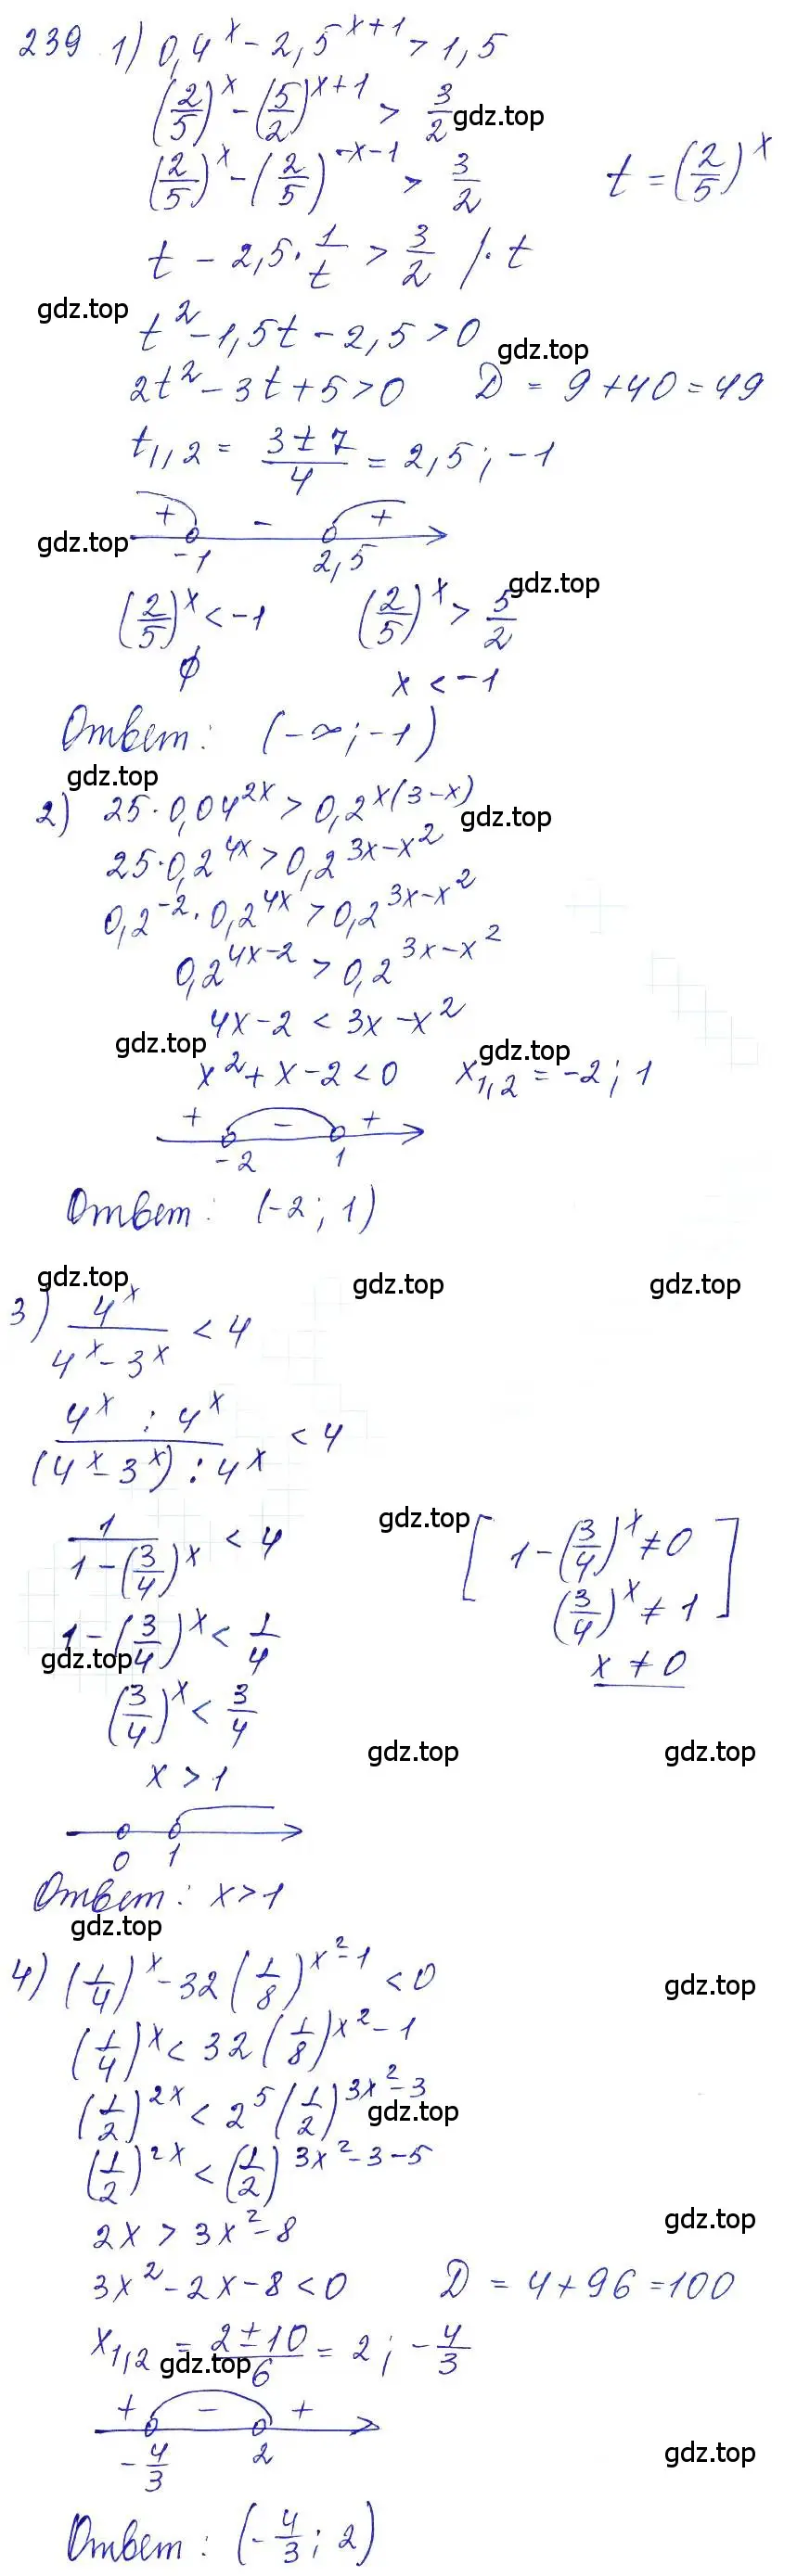 239 1) 0,4^x - 2,5^(x+1) > 1,5
(2/5)^x - (5/2)^(x+1) > 3/2
gdz.top
(2/5)^x - (2/5)^(-x-1) > 3/2 t = (2/5)^x
t - 2,5 · 1/t > 3/2 /· t
gdz.top
t² - 1,5t - 2,5 > 0
gdz.top
2t² - 3t + 5 > 0 D = 9 + 40 = 49
t1,2 = (3 ± 7)/4 = 2,5; -1
+ - +
gdz.top
-1 2,5
gdz.top
(2/5)^x < -1 (2/5)^x > 5/2
∅ x < -1
Ответ: (-∞; -1)
gdz.top
2) 25 · 0,04^(2x) > 0,2^(x(3-x))
gdz.top
25 · 0,2^(4x) > 0,2^(3x-x²)
0,2^(-2) · 0,2^(4x) > 0,2^(3x-x²)
0,2^(4x-2) > 0,2^(3x-x²)
4x - 2 < 3x - x²
gdz.top gdz.top
x² + x - 2 < 0 x1,2 = -2; 1
+ - +
-2 1
Ответ: (-2; 1)
gdz.top gdz.top gdz.top
3) 4^x/(4^x - 3^x) < 4
(4^x : 4^x)/((4^x - 3^x) : 4^x) < 4
gdz.top
1/(1 - (3/4)^x) < 4 [1 - (3/4)^x ≠ 0
1 - (3/4)^x < 1/4 (3/4)^x ≠ 1]
gdz.top
x ≠ 0
(3/4)^x < 3/4
gdz.top gdz.top
x > 1
0 1
Ответ: x > 1
gdz.top
4) (1/4)^x - 32(1/8)^(x²-1) < 0
gdz.top
(1/4)^x < 32(1/8)^(x²-1)
(1/2)^(2x) < 2^5 (1/2)^(3x²-3)
gdz.top
(1/2)^(2x) < (1/2)^(3x²-3-5)
gdz.top
2x > 3x² - 8
3x² - 2x - 8 < 0 D = 4 + 96 = 100
x1,2 = (2 ± 10)/6 = 2; -4/3
gdz.top
+ - +
-4/3 2
gdz.top
Ответ: (-4/3; 2)